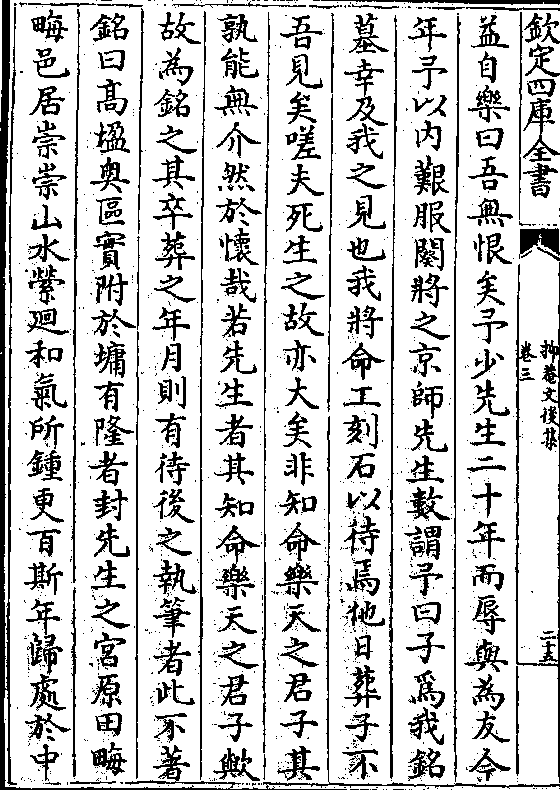 欽定四庫全書
抑菴文後集
卷三
二十五
益自樂曰吾無恨矣予少先生二十年而辱與為友今
年予以内艱服闋將之京師先生數謂予曰子爲我銘
墓幸及我之見也我將命工刻石以待焉他日葬予不
吾見矣嗟夫死生之故亦大矣非知命樂天之君子其
孰能無介然於懷哉若先生者其知命樂天之君子歟
故為銘之其卒葬之年月則有待後之執筆者此不著
銘曰髙榲奥區實附於墉有隆者封先生之宮原田畮
畮邑居崇崇山水縈廻和氣所鍾更百斯年歸處於中